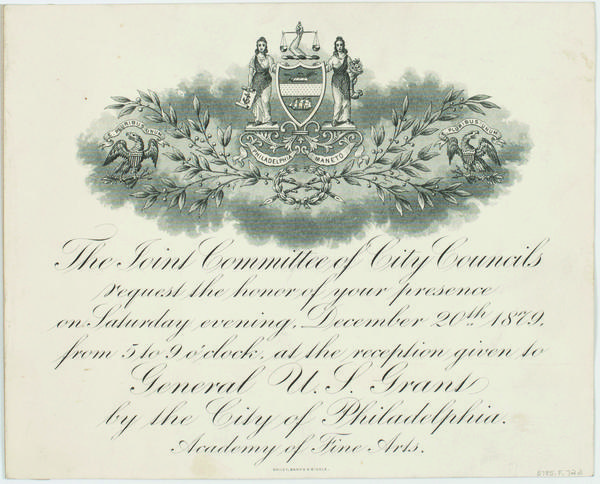 E PLURIBUS UNUM
PHILADELPHIA MANETO
E PLURIBUS UNUM
The Joint Committee of City Councils
request the honor of your presence
on Saturday evening, December 20th 1879,
from 5 to 9 o'clock, at the reception given to
General U. S. Grant
by the City of Philadelphia.
Academy of Fine Arts.